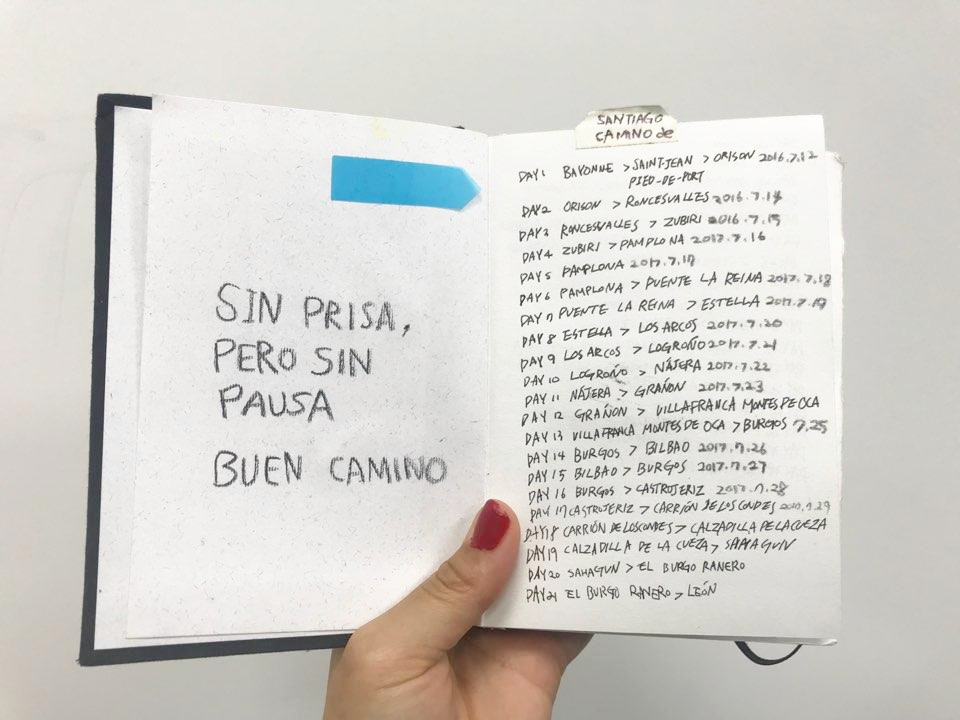 SIN PRISA,
PERO SIN
PAUSA
BUEN CAMINO
SANTIAGO
CAMINO de
DAY1 BAYONNE > SAINT-JEAN > ORISON 2016.7.12
PIED-DE-PORT
DAY2 ORISON > RONCESVALLES 2016.7.14
DAY3 RONCESVALLES > ZUBIRI 2016.7.15
DAY4 ZUBIRI > PAMPLONA 2017.7.16
DAY5 PAMPLONA 2017.7.17
DAY6 PAMPLONA > PUENTE LA REINA 2017.7.18
DAY7 PUENTE LA REINA > ESTELLA 2017.7.19
DAY8 ESTELLA > LOS ARCOS 2017.7.20
DAY9 LOS ARCOS > LOGROÑO 2017.7.21
DAY10 LOGROÑO > NÁJERA 2017.7.22
DAY11 NÁJERA > GRAÑON 2017.7.23
DAY12 GRAÑON > VILLAFRANCA MONTES DE OCA
DAY13 VILLAFRANCA MONTES DE OCA > BURGOS 7.25
DAY14 BURGOS > BILBAO 2017.7.26
DAY15 BILBAO > BURGOS 2017.7.27
DAY16 BURGOS > CASTROJERIZ 2017.7.28
DAY17 CASTROJERIZ > CARRIÓN DE LOS CONDES 2017.7.29
DAY18 CARRIÓN DE LOS CONDES > CALZADILLA DE LA CUEZA
DAY19 CALZADILLA DE LA CUEZA > SAHAGUN
DAY20 SAHAGUN > EL BURGO RANERO
DAY21 EL BURGO RANERO > LEÓN